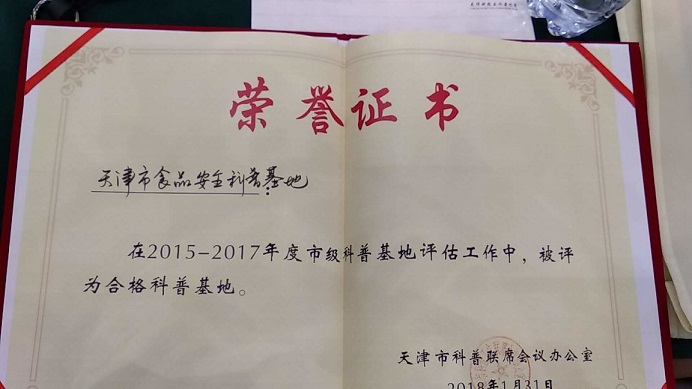 荣誉证书
天津市食品安全科普基地:
在2015-2017年度市级科普基地评估工作中，被评
为合格科普基地。
天津市科普联席会议办公室
2018年1月31日